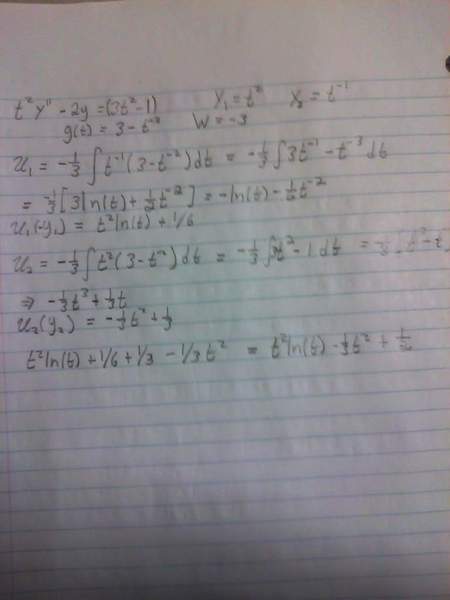 t² y'' - 2y = (3t² - 1)   Y₁ = t²   Y₂ = t⁻¹
g(t) = 3 - t⁻²   W = -3
u₁ = -⅓ ∫ t⁻¹ (3 - t⁻²) dt = -⅓ ∫ 3t⁻¹ - t⁻³ dt
= -⅓ [3 ln(t) + ½ t⁻²] = -ln(t) - ½ t⁻²
u₁(-y₁) = t² ln(t) + 1/6
u₂ = -⅓ ∫ t² (3 - t⁻²) dt = -⅓ ∫ 3t² - 1 dt = -⅓ [t³ - t
⇒ -⅓ t³ + ⅓ t
u₂(y₂) = -⅓ t² + ⅓
t² ln(t) + 1/6 + 1/3 - 1/3 t² = t² ln(t) - ⅓ t² + ½